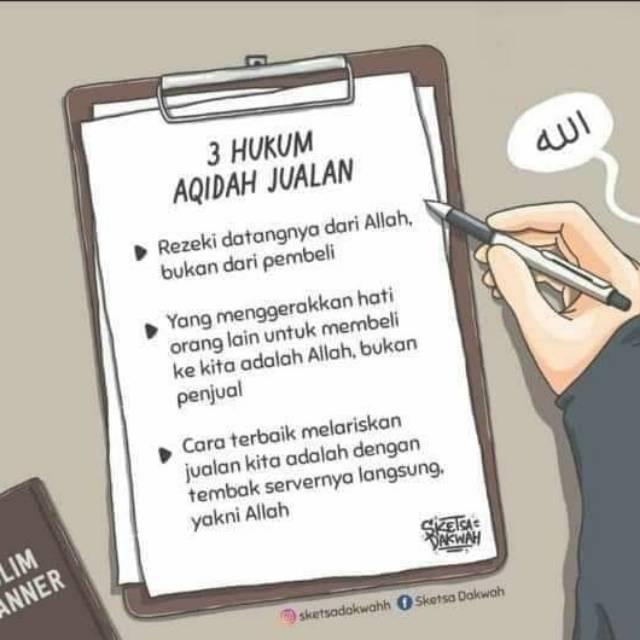 3 HUKUM
AQIDAH JUALAN
Rezeki datangnya dari Allah,
bukan dari pembeli
Yang menggerakkan hati
orang lain untuk membeli
ke kita adalah Allah, bukan
penjual
Cara terbaik melariskan
jualan kita adalah dengan
tembak servernya langsung,
yakni Allah
SKETSA
DAKWAH
الله
LIM
ANNER
sketsadakwahh Sketsa Dakwah